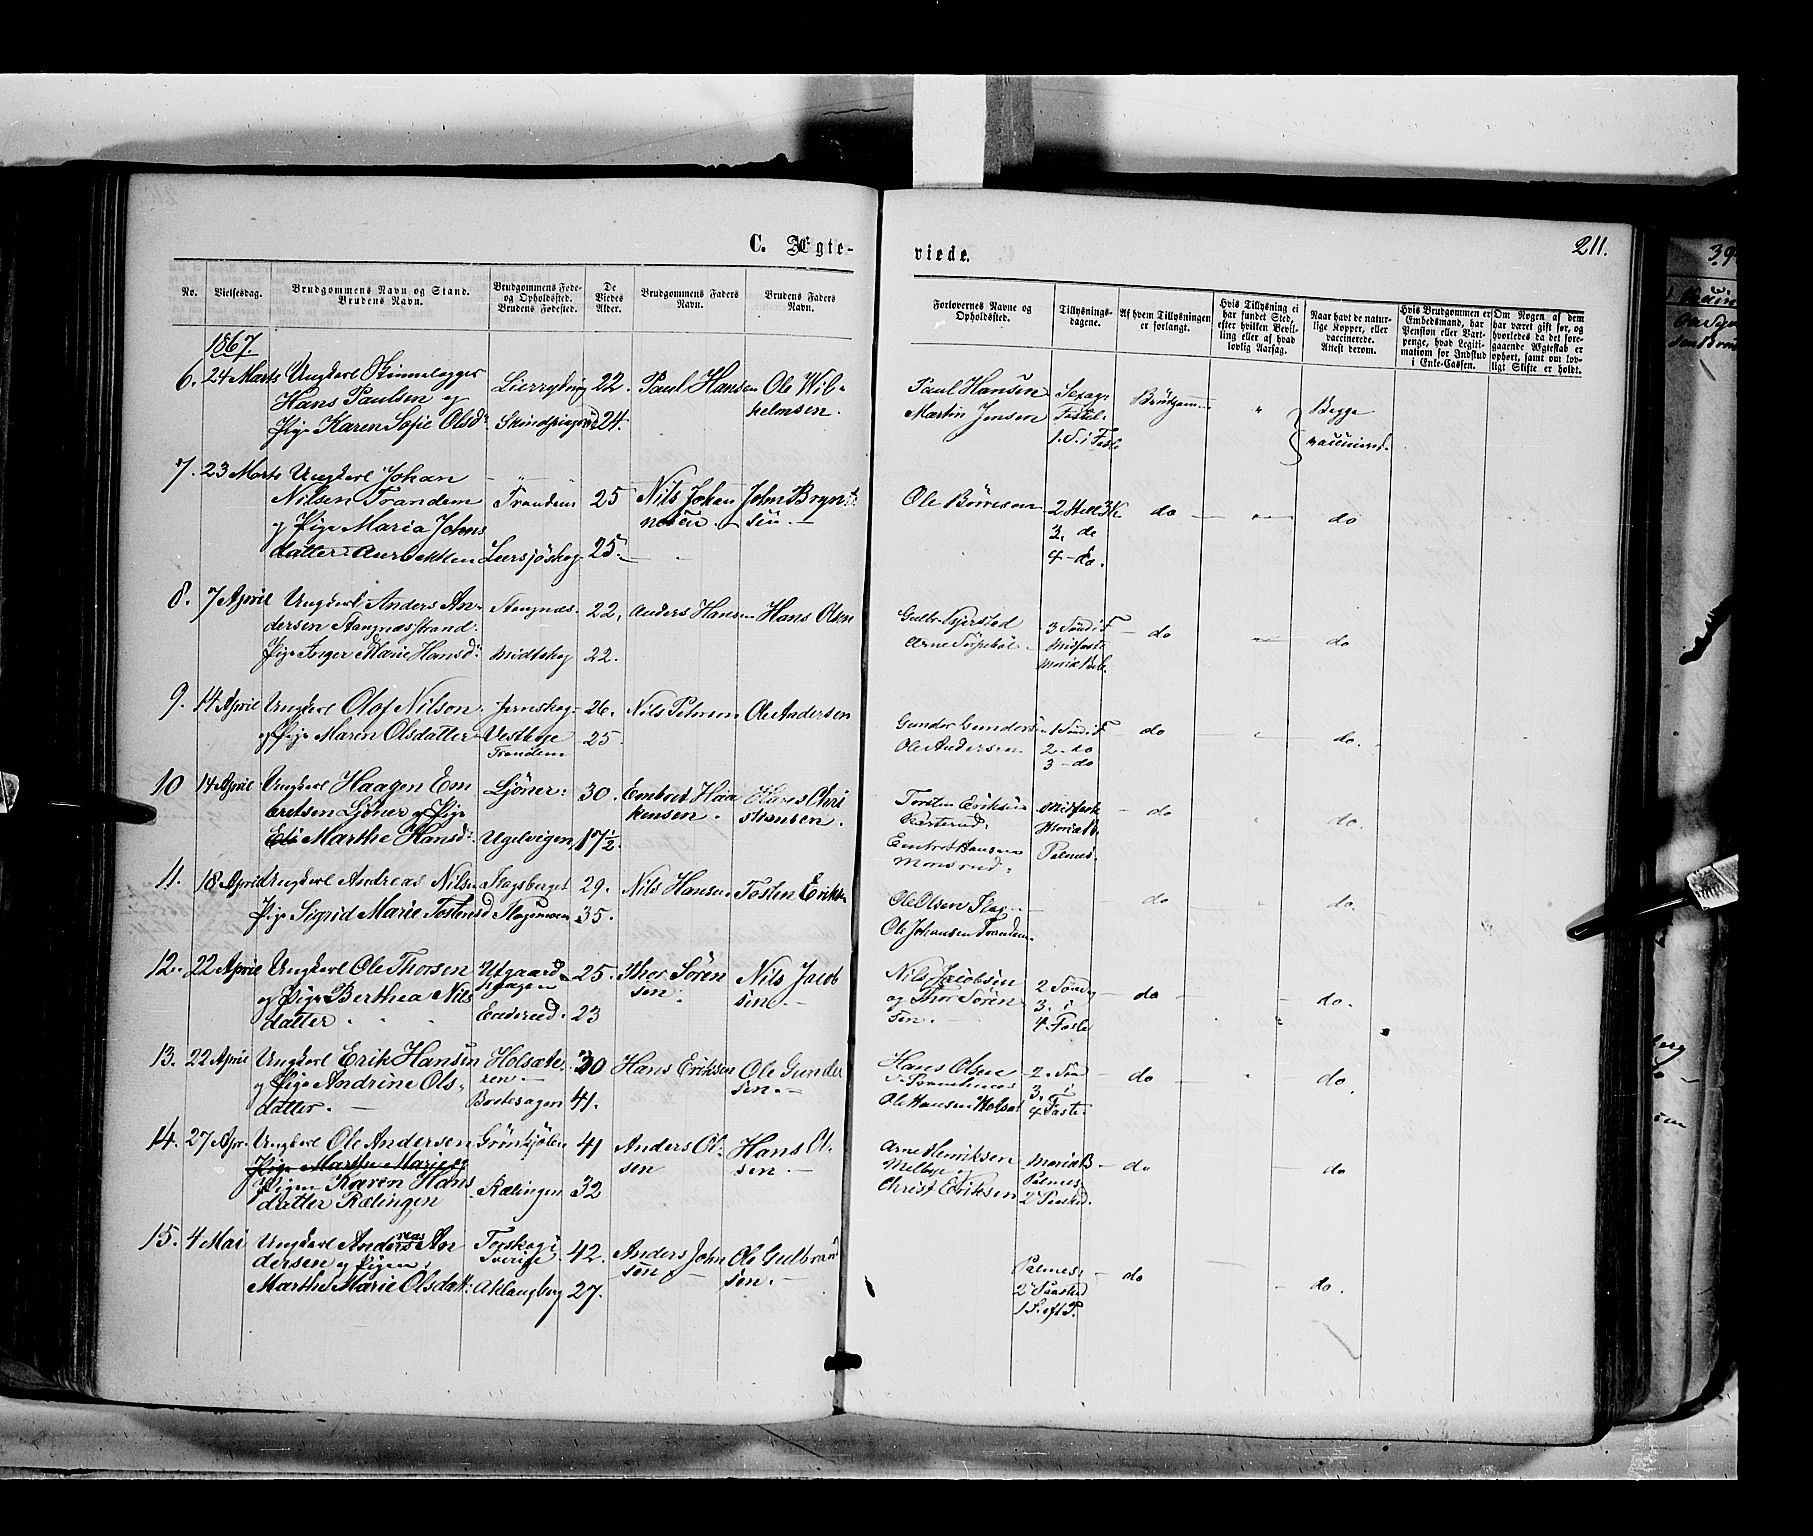 C. Ægte-
viede.
211.
No.
Vielsesdag.
Brudgommens Navn og Stand.
Brudens Navn.
Brudgommens Føde-
og Opholdssted.
Brudens Fødested.
De
Viedes
Alder.
Brudgommens Faders
Navn.
Brudens Faders
Navn.
Forlovernes Navne og
Opholdssted.
Tillysnings-
dagene.
Af hvem Tillysningen
er forlangt.
Hvis Tillysning ei
har fundet Sted,
efter hvilken Bevil-
ling eller af hvad
lovlig Aarsag.
Naar havt de natur-
lige Kopper, eller
vaccinerede.
Attest derom.
Hvis Brudgommen er
Embedsmand, har
Pension eller Vart-
penge, hvad Legiti-
mation for Indskud
i Enke-Cassen.
Om Nogen af dem
har været gift før, og
hvorledes da det fore-
gaaende Ægteskab er
ophørt, samt om lov-
ligt Skifte er holdt.
1867.
6. 24 Marts Ungkarl
Hans Paulsen og
Pige Karen Sofie Olsd.
22.
24.
Paul Hansen
Ole Wil-
helmsen.
Paul Hansen
Martin Jensen
Sexag.
Fastel.
1. S. i Faste
Brudgom
"
Begge
vaccinered.
7. 23 Marts Ungkarl Johan
Nilsen Trandem
og Pige Maria Johns
datter Aurbekken
Trandem
Liersjöskog
25
25.
Nils Johan
nesen.
John Bryn
sen.
Ole Börresen
2 Hell. 3 K.
3. do
4 - do.
do
"
do
8. 7 April Ungkarl Anders An-
dersen Stangnæsstrand.
Pige Anger Marie Hansd.
Stangnæs.
Midtskog
22.
22.
Anders Hansen
Hans Olsen
3 Sönd. i F
Midfaste
Mariæ Beb.
do
do
9. 14 April Ungkarl Olof Nilson
og Pige Maren Olsdatter
Jernskog
Trandem
26.
25.
Nils Peterson
Ole Andersen
Gunder Gunders
Ole Andersen
1 Sönd. i F
2 - do
3 - do
do
"
do.
10 14 April Ungkarl Haagen Em
bretsen Ljöner og Pige
Marthe Hansd.
Ljöner.
Ugelvigen
30.
17½.
Embret Haa
kensen.
Hans Chri
stiansen.
Torsten Eriksen
Embret Hansen
Monsrud.
Midfaste
Mariæ B.
Palmes.
do
"
do.
11. 18 April Ungkarl Andreas Nilsen
Pige Sigrid Marie Tostensd
29.
35.
Nils Hansen
Tosten Eriksen
Ole Olsen Flag
Ole Johansen Trandem.
do
"
do.
12. 22 April Ungkarl Ole Thorsen
og Pige Berthea Nils
datter
Utgaard
Enderud.
25.
23
Thor Sören
sen.
Nils Jacob
sen.
Nils Jacobsen
og Thor Sören
sen.
2 Sönd
3. i
4. Faste
do
do.
13. 22 April Ungkarl Erik Hansen
og Pige Andrine Ols-
datter.
Holsæte
ren.
Bostesagen
30
41.
Hans Eriksen
Ole Gunder
sen.
Hans Olsen
Ole Hansen Holsæt
2. Sönd
3. i
4 Faste.
do
"
do.
14. 27 Apr. Ungkarl Ole Andersen
Pige Marthe Marie og
Pigen Karen Hans
datter Rælingen
Grönsjöberg
Rælingen
41
32
Anders Ol-
sen
Hans Ol-
sen.
Arne Henriksen
Melbye og
Christ Eriksen
Mariæ B
Palmes.
2 Paaskd.
do
do
15. 4 Mai Ungkarl Anders An
dersen og Pigen
Marthe Marie Olsdatt.
Torskog i
Sverige
Aklangberg
42.
27.
Anders John
sen.
Ole Gulbran
sen.
Palmes.
2 Paaskd
1 S. eft P.
do
do.